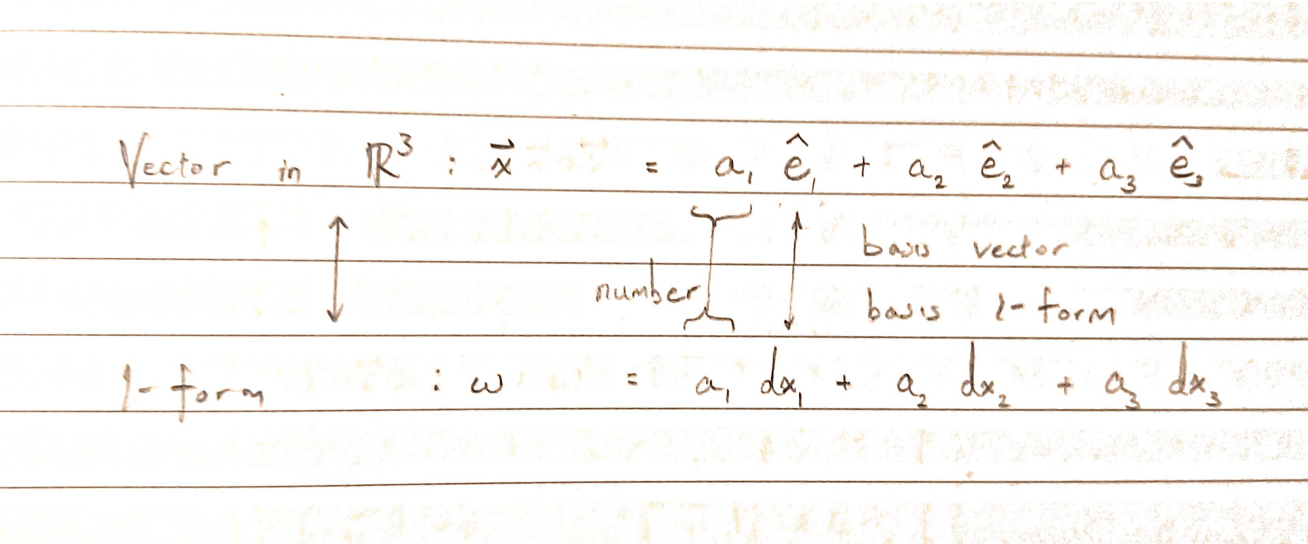 Vector in ℝ³ : x⃗ = a₁ ê₁ + a₂ ê₂ + a₃ ê₃
basis vector
number
basis 1-form
1-form : ω = a₁ dx₁ + a₂ dx₂ + a₃ dx₃